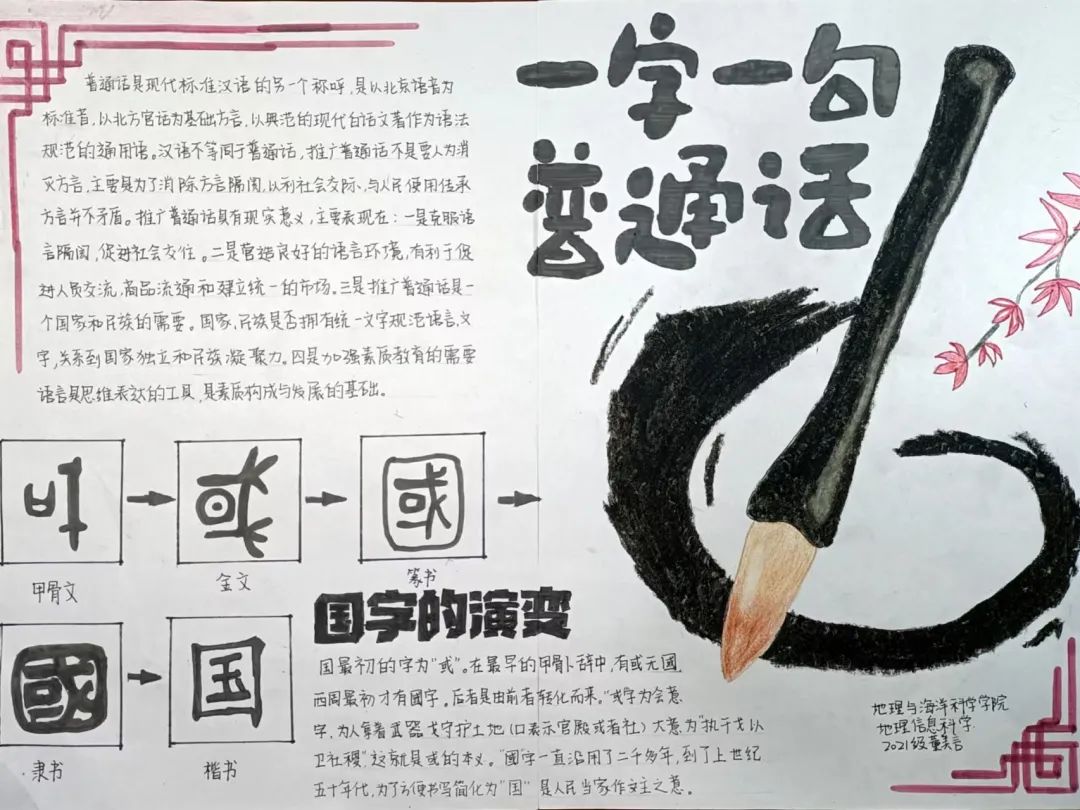 一字一句
普通话
普通话是现代标准汉语的另一个称呼,是以北京语音为
标准音,以北方官话为基础方言,以典范的现代白话文著作为语法
规范的通用语。汉语不等同于普通话,推广普通话不是要人为消
灭方言,主要是为了消除方言隔阂,以利社会交际,与人民使用传承
方言并不矛盾。推广普通话具有现实意义,主要表现在:一是克服语
言隔阂,促进社会交往。二是营造良好的语言环境,有利于促
进人员交流,商品流通和建立统一的市场。三是推广普通话是一
个国家和民族的需要。国家,民族是否拥有统一文字规范语言,文
字,关系到国家独立和民族凝聚力。四是加强素质教育的需要
语言是思维表达的工具,是素质构成与发展的基础。
或
甲骨文
或
金文
國
篆书
國
隶书
国
楷书
国字的演变
国最初的字为“或”。在最早的甲骨卜辞中,有或无國,
西周最初才有國字。后者是由前者转化而来。“或字为会意
字,为人拿着武器戈守护土地(口表示宫殿或者社)大意为“执干戈以
卫社稷”,这就是或的本义。“國字一直沿用了二千多年,到了上世纪
五十年代,为了方便书写简化为“国”是人民当家作文主之意。
地理与海洋科学学院
地理信息科学
2021级董美言